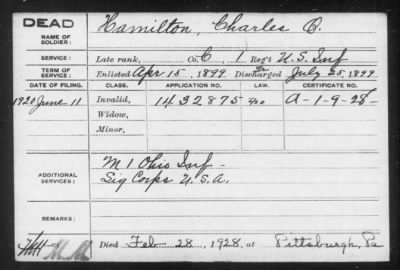 DEAD
NAME OF SOLDIER: Hamilton, Charles O.
SERVICE: Late rank, Co. C, 1 Regt U.S. Inf
TERM OF SERVICE: Enlisted Apr 15, 1899. Discharged July 25, 1899
DATE OF FILING. CLASS. APPLICATION NO. LAW. CERTIFICATE NO.
1920 June 11 Invalid, 1432875 A-1-9-28-
Widow,
Minor,
ADDITIONAL SERVICES: M 1 Ohio Inf -
Sig Corps U.S.A.
REMARKS:
Died Feb 28, 1928, at Pittsburgh, Pa